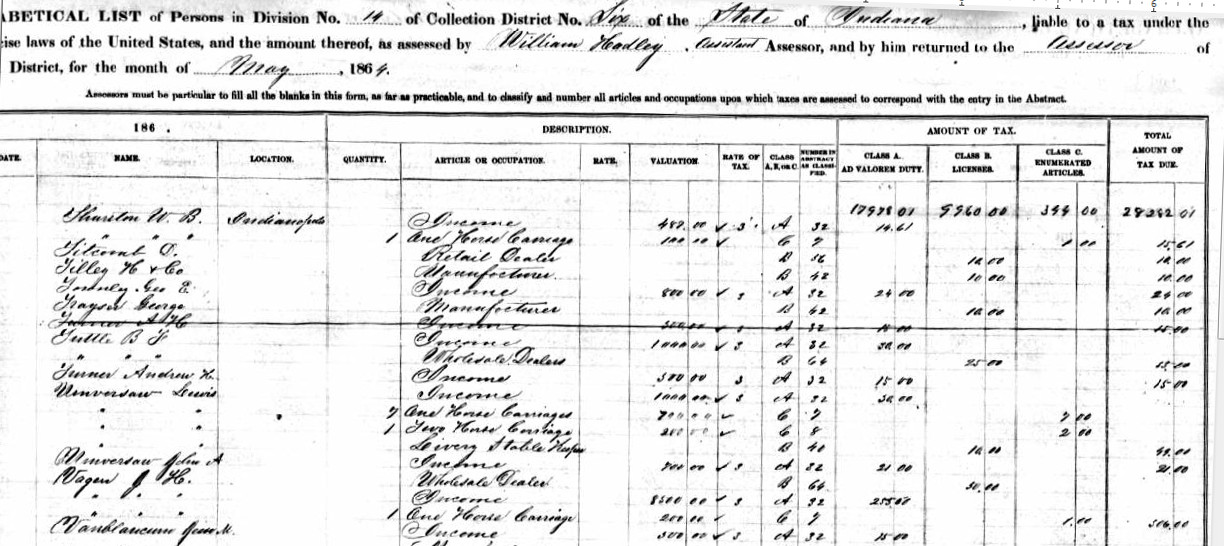 ABETICAL LIST of Persons in Division No. 14 of Collection District No. Six of the State of Indiana, liable to a tax under the
ise laws of the United States, and the amount thereof, as assessed by William Hadley, Assistant Assessor, and by him returned to the Assessor of
District, for the month of May, 1864.
Assessors must be particular to fill all the blanks in this form, as far as practicable, and to classify and number all articles and occupations upon which taxes are assessed to correspond with the entry in the Abstract.
186 . DESCRIPTION. AMOUNT OF TAX. TOTAL AMOUNT OF TAX DUE.
DATE. NAME. LOCATION. QUANTITY. ARTICLE OR OCCUPATION. RATE. VALUATION. RATE OF TAX. CLASS A, B, OR C. NUMBER IN ABSTRACT AS CLASSIFIED. CLASS A. AD VALOREM DUTY. CLASS B. LICENSES. CLASS C. ENUMERATED ARTICLES.
17978 01 9960 00 344 00 28282 01
Thurston W. B. Indianapolis Income 487.00 3 A 32 14.61
" " " 1 One Horse Carriage 100 00 C 7 1 00 15.61
Titcomb D. Retail Dealer B 56 10.00 10.00
Tilley H & Co Manufacturer B 42 10 00 10.00
Townley Geo E. Income 800 00 3 A 32 24 00 24 00
Trayser George Manufacturer B 42 10.00 10.00
Turner A H Income 500.00 3 A 32 15 00 15.00
Tuttle B F Income 1000 00 3 A 32 30.00
" " " Wholesale Dealers B 64 25 00
Turner Andrew H. Income 500 00 3 A 32 15 00 15 00
Unversaw Lewis Income 1000 00 3 A 32 30.00
" " 7 One Horse Carriages 700 00 C 7 7 00
" " 1 Two Horse Carriage 200 00 C 8 2 00
Livery Stable Keeper B 40 10.00 49.00
Unversaw John A Income 700 00 3 A 32 21 00 21.00
Vagen J H. Wholesale Dealer B 64 50.00
" " " Income 8500 00 3 A 32 255.00
" " " 1 One Horse Carriage 200 00 C 7 1.00 306.00
Vanblaricum M. Income 500 00 3 A 32 15 00